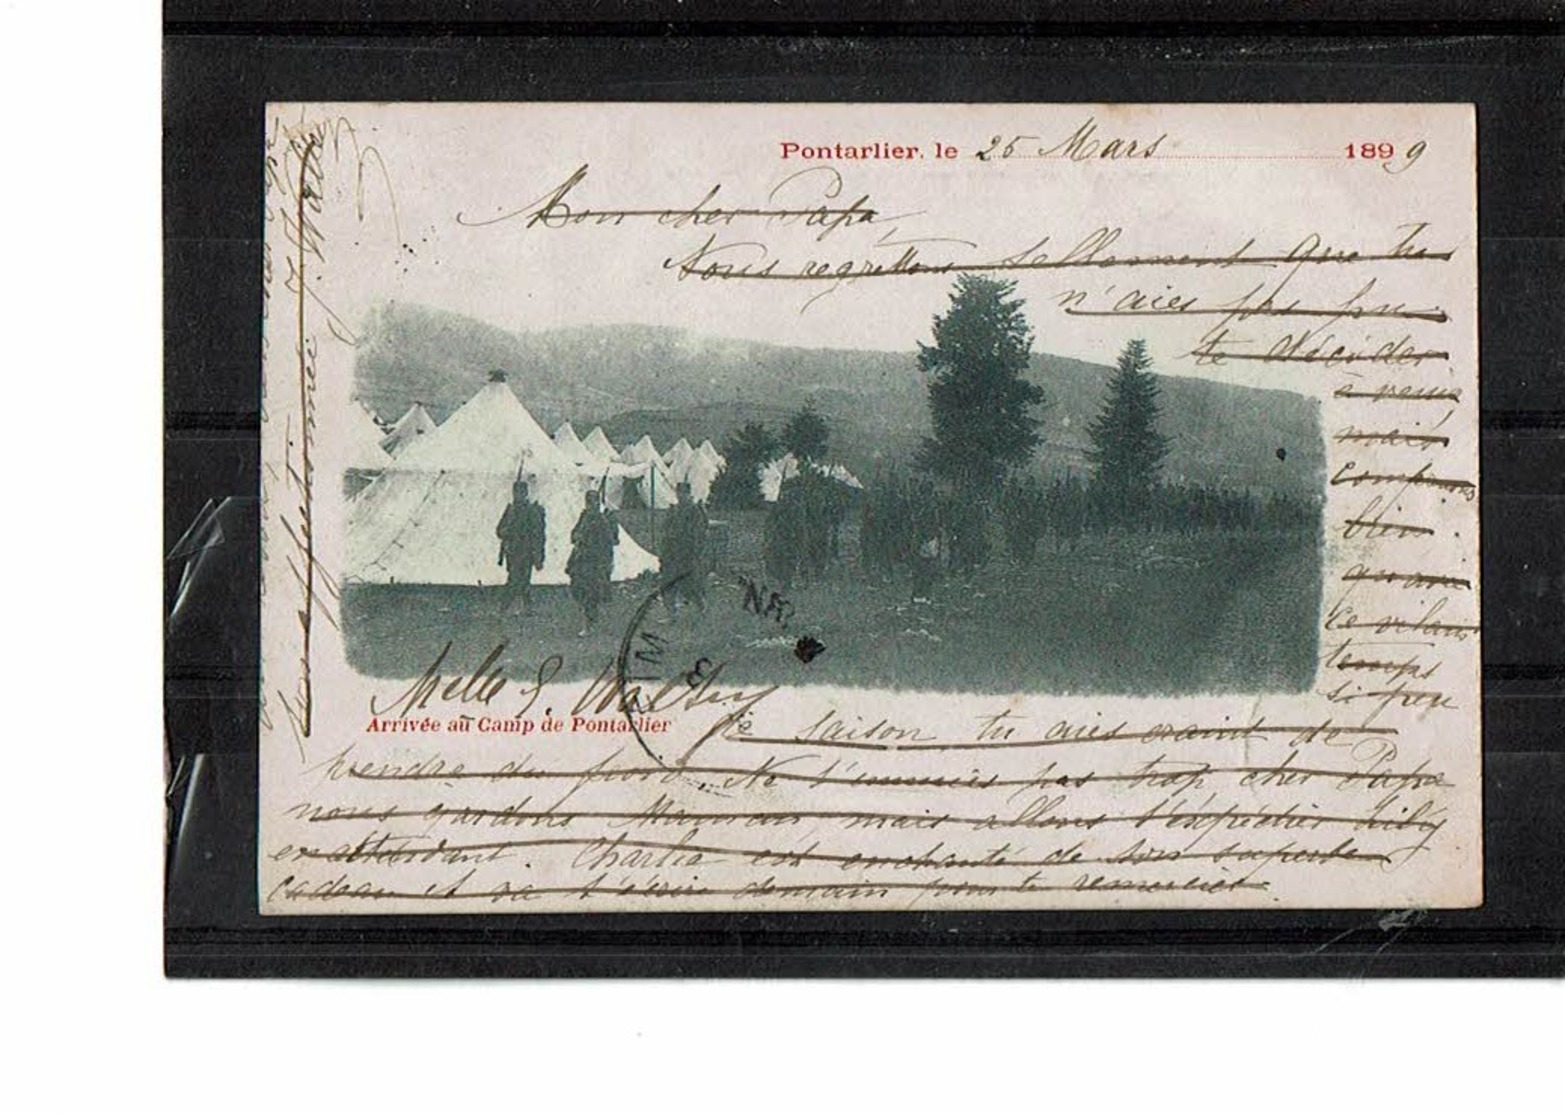 Pontarlier, le 25 Mars 1899
Mon cher Papa,
Nous regrettons tellement que tu
n'aies pas pu
te décider
à venir,
mais
comprenons
bien
le vilain
temps
si peu
Melle J.
Arrivée au Camp de Pontarlier
de saison tu aies craint de
prendre du froid. Ne t'ennuies pas trop cher Papa
nous gardons Maman, mais allons t'expédier
en attendant. Charlie est enchanté de son superbe
cadeau et va t'écrire demain pour te remercier